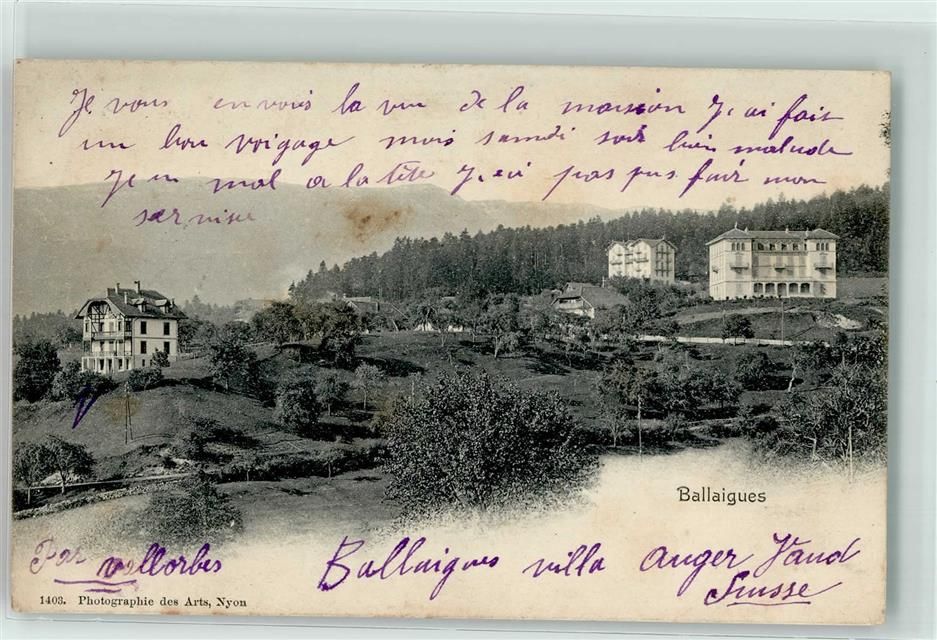 Je vous envois la vue de la maision J'ai fait
un bon voigage mais samdi soir bien malade
J'en mal a la tête J'ei pas pus fair mon
servise
Ballaigues
Par vallorbes
Ballaigues villa Anger Vaud
Suisse
1403. Photographie des Arts, Nyon